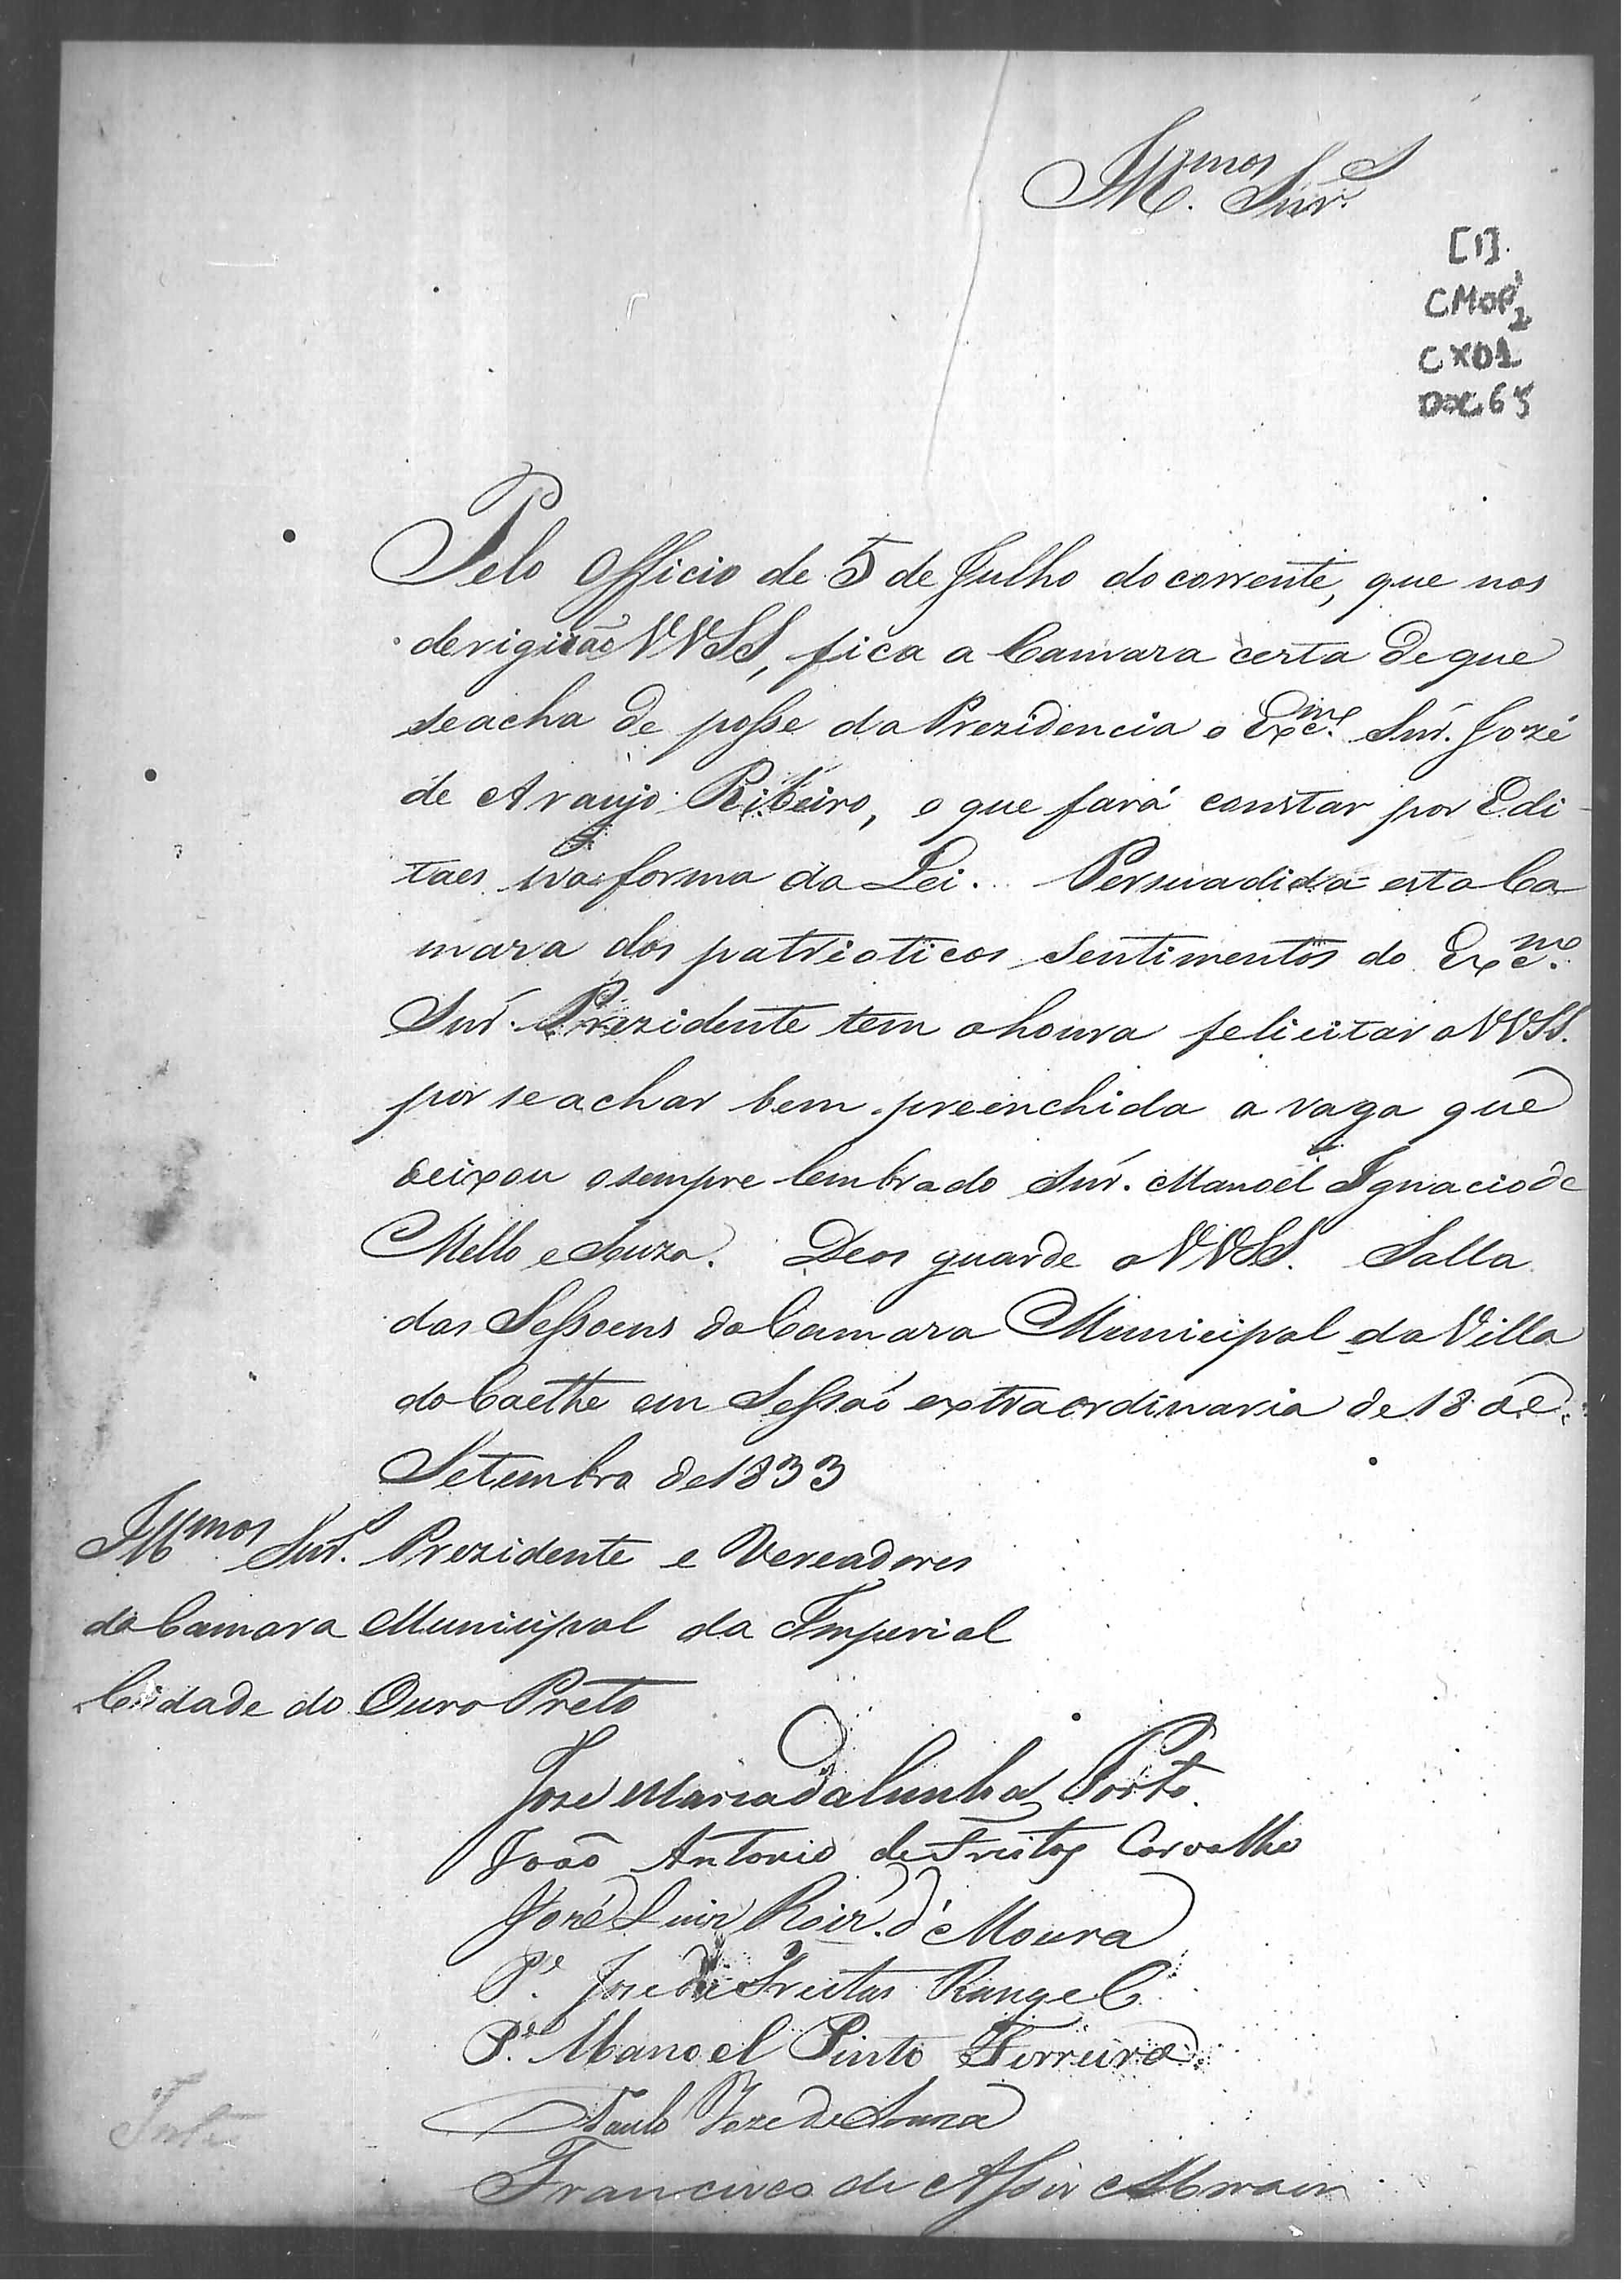 Ill.mos Snr.s
[1]
CMOP
CX01
DOC 65
Pelo Officio de 5 de Julho do corrente, que nos
derigirão VVSS, fica a Camara certa de que
se acha de posse da Prezidencia o Exc.mo Snr. Jozé
de Araujo Ribeiro, o que fará constar por Edi-
taes na forma da Lei. Persuadida esta Ca
mara dos patrioticos sentimentos do Exc.mo
Snr. Prezidente tem a honra felicitar a VVSS.
por se achar bem preenchida a vaga que
deixou o sempre lembrado Snr. Manoel Ignacio de
Mello e Souza. Deos guarde a VVSS. Salla
das Sessoens da Camara Municipal da Villa
do Caethe em Sessaõ extraordinaria de 18 de
Setembro de 1833
Ill.mos Snr.s Prezidente e Vereadores
da Camara Municipal da Imperial
Cidade do Ouro Preto
Jose Maria da Cunha Porto
João Antonio de Freitas Carvalho
José Luiz Roiz. d'Moura
P.e Jose de Freitas Rangel
P.e Manoel Pinto Ferreira
Paulo Jose de Souza
Francisco de Assis Morais